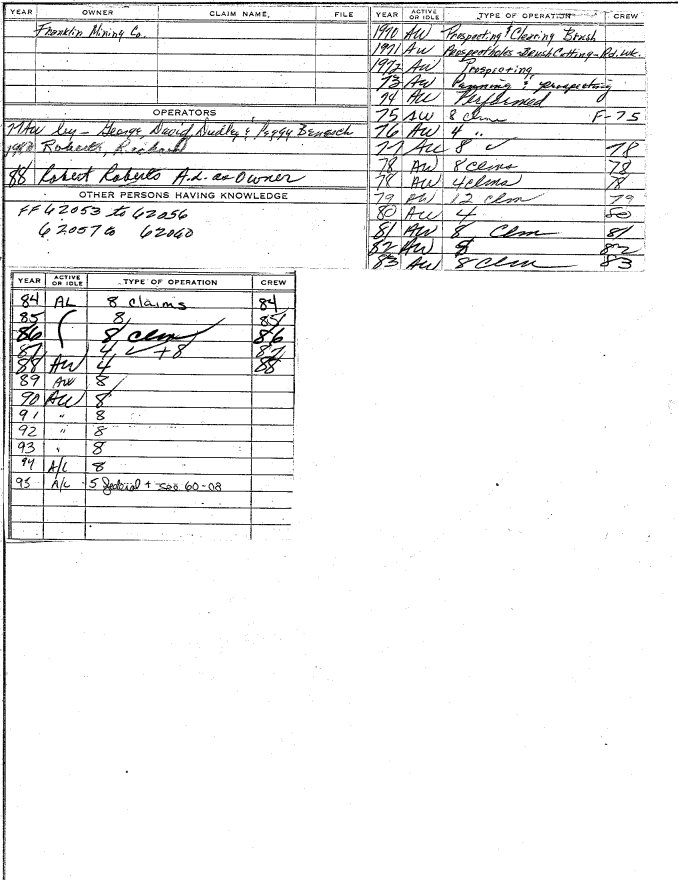 YEAR OWNER CLAIM NAME, FILE
Franklin Mining Co.
OPERATORS
77AW by - George, David Dudley & Peggy Benesch
Roberts, Richard
88 Robert Roberts A.L. as Owner
OTHER PERSONS HAVING KNOWLEDGE
FF 62053 to 62056
62057 to 62060
YEAR ACTIVE OR IDLE TYPE OF OPERATION CREW
1970 AW Prospecting & Clearing Brush
1971 AW Prospectholes - Brush Cutting - Rd. Wk.
1972 AW Prospecting
73 AW Panning & prospecting
74 AW Performed
75 AW 8 clms F-75
76 AW 4 "
77 AW 8 ✓ 78
78 AW 8 clms 78
78 AW 4 clms 78
79 AW 12 Clm 79
80 AW 4 80
81 AW 8 Clm 81
82 AW 82
83 AW 8 Clm 83
YEAR ACTIVE OR IDLE TYPE OF OPERATION CREW
84 AL 8 claims 84
85 8 85
86 8 clm 86
87 4 ✓ + 8 87
88 AW 4 88
89 AW 8
90 AW 8
91 " 8
92 " 8
93 " 8
94 A/L 8
95 A/L 5 federal + see 60-08